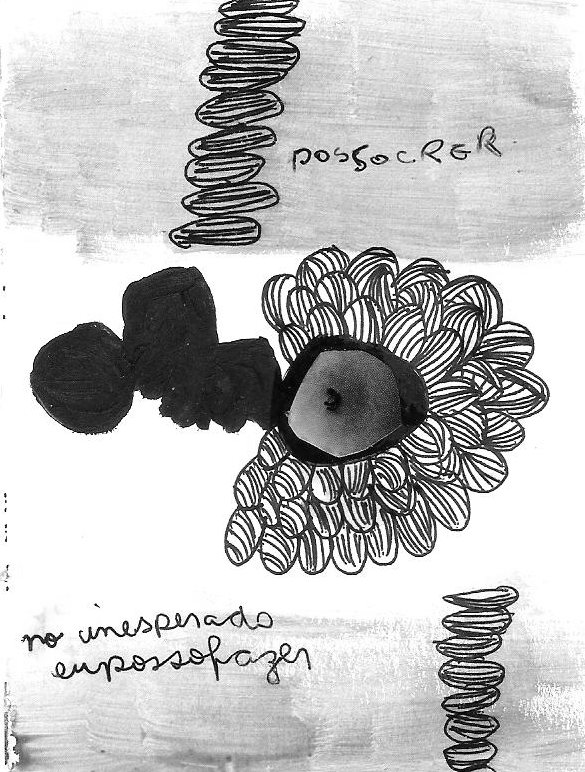 possocRER
no inesperado
eupossofazer